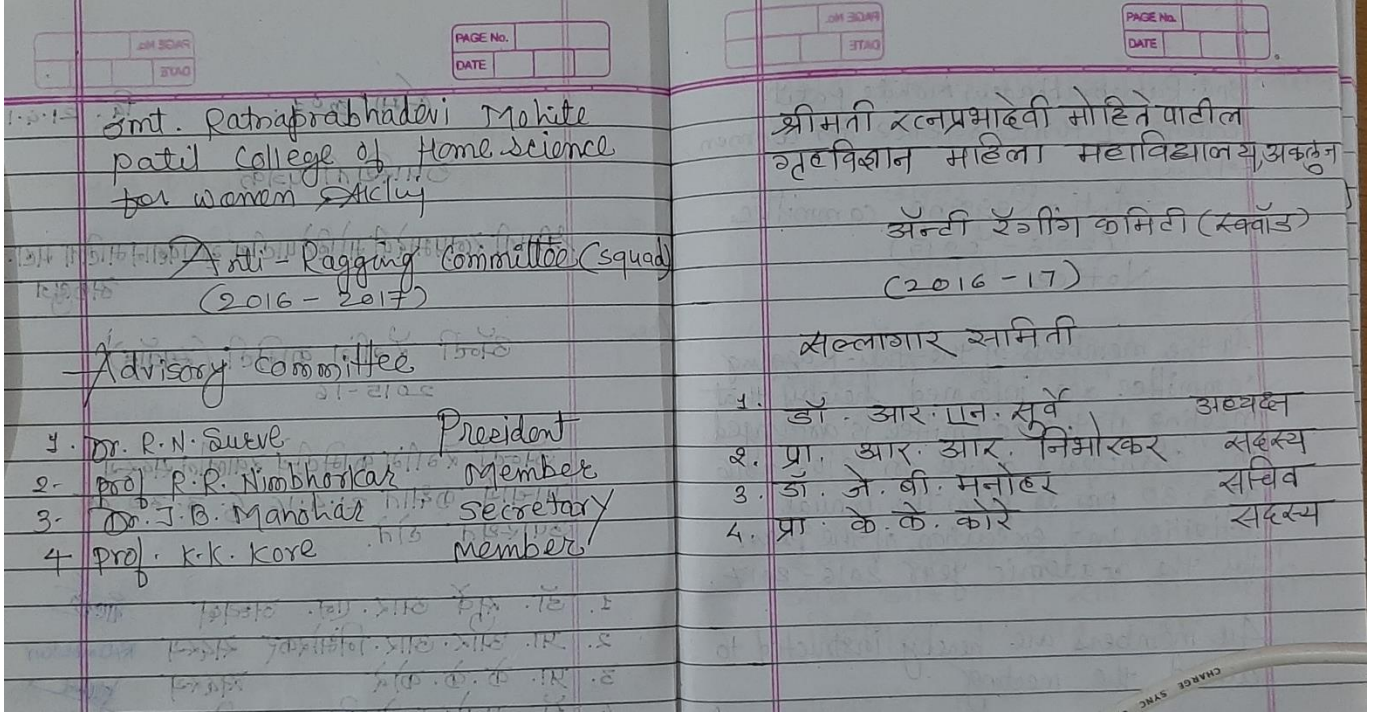 PAGE No.
DATE
Smt. Ratnaprabhadevi Mohite
patil College of Home science
for women Akluj
Anti-Ragging Committee (squad)
(2016 - 2017)
Advisory Committee
1. Dr. R.N. Surve President
2- prof R.R. Nimbhorkar Member
3- Dr. J.B. Manohar secretary
4 prof. K.K. Kore Member
PAGE No.
DATE
श्रीमती रत्नप्रभादेवी मोहिते पाटील
गृहविज्ञान महिला महाविद्यालय, अकलुज
ॲन्टी रॅगींग कमिटी (स्क्वॉड)
(2016-17)
सल्लागार समिती
1. डॉ. आर. एन. सुर्वे अध्यक्ष
२. प्रा. आर. आर. निंभोरकर सदस्य
3. डॉ. जे. बी. मनोहर सचिव
4. प्रा. के. के. कोरे सदस्य
CHARGE SYNC